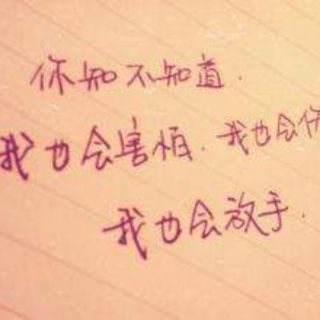 你知不知道.
我也会害怕.我也会
我也会放手.